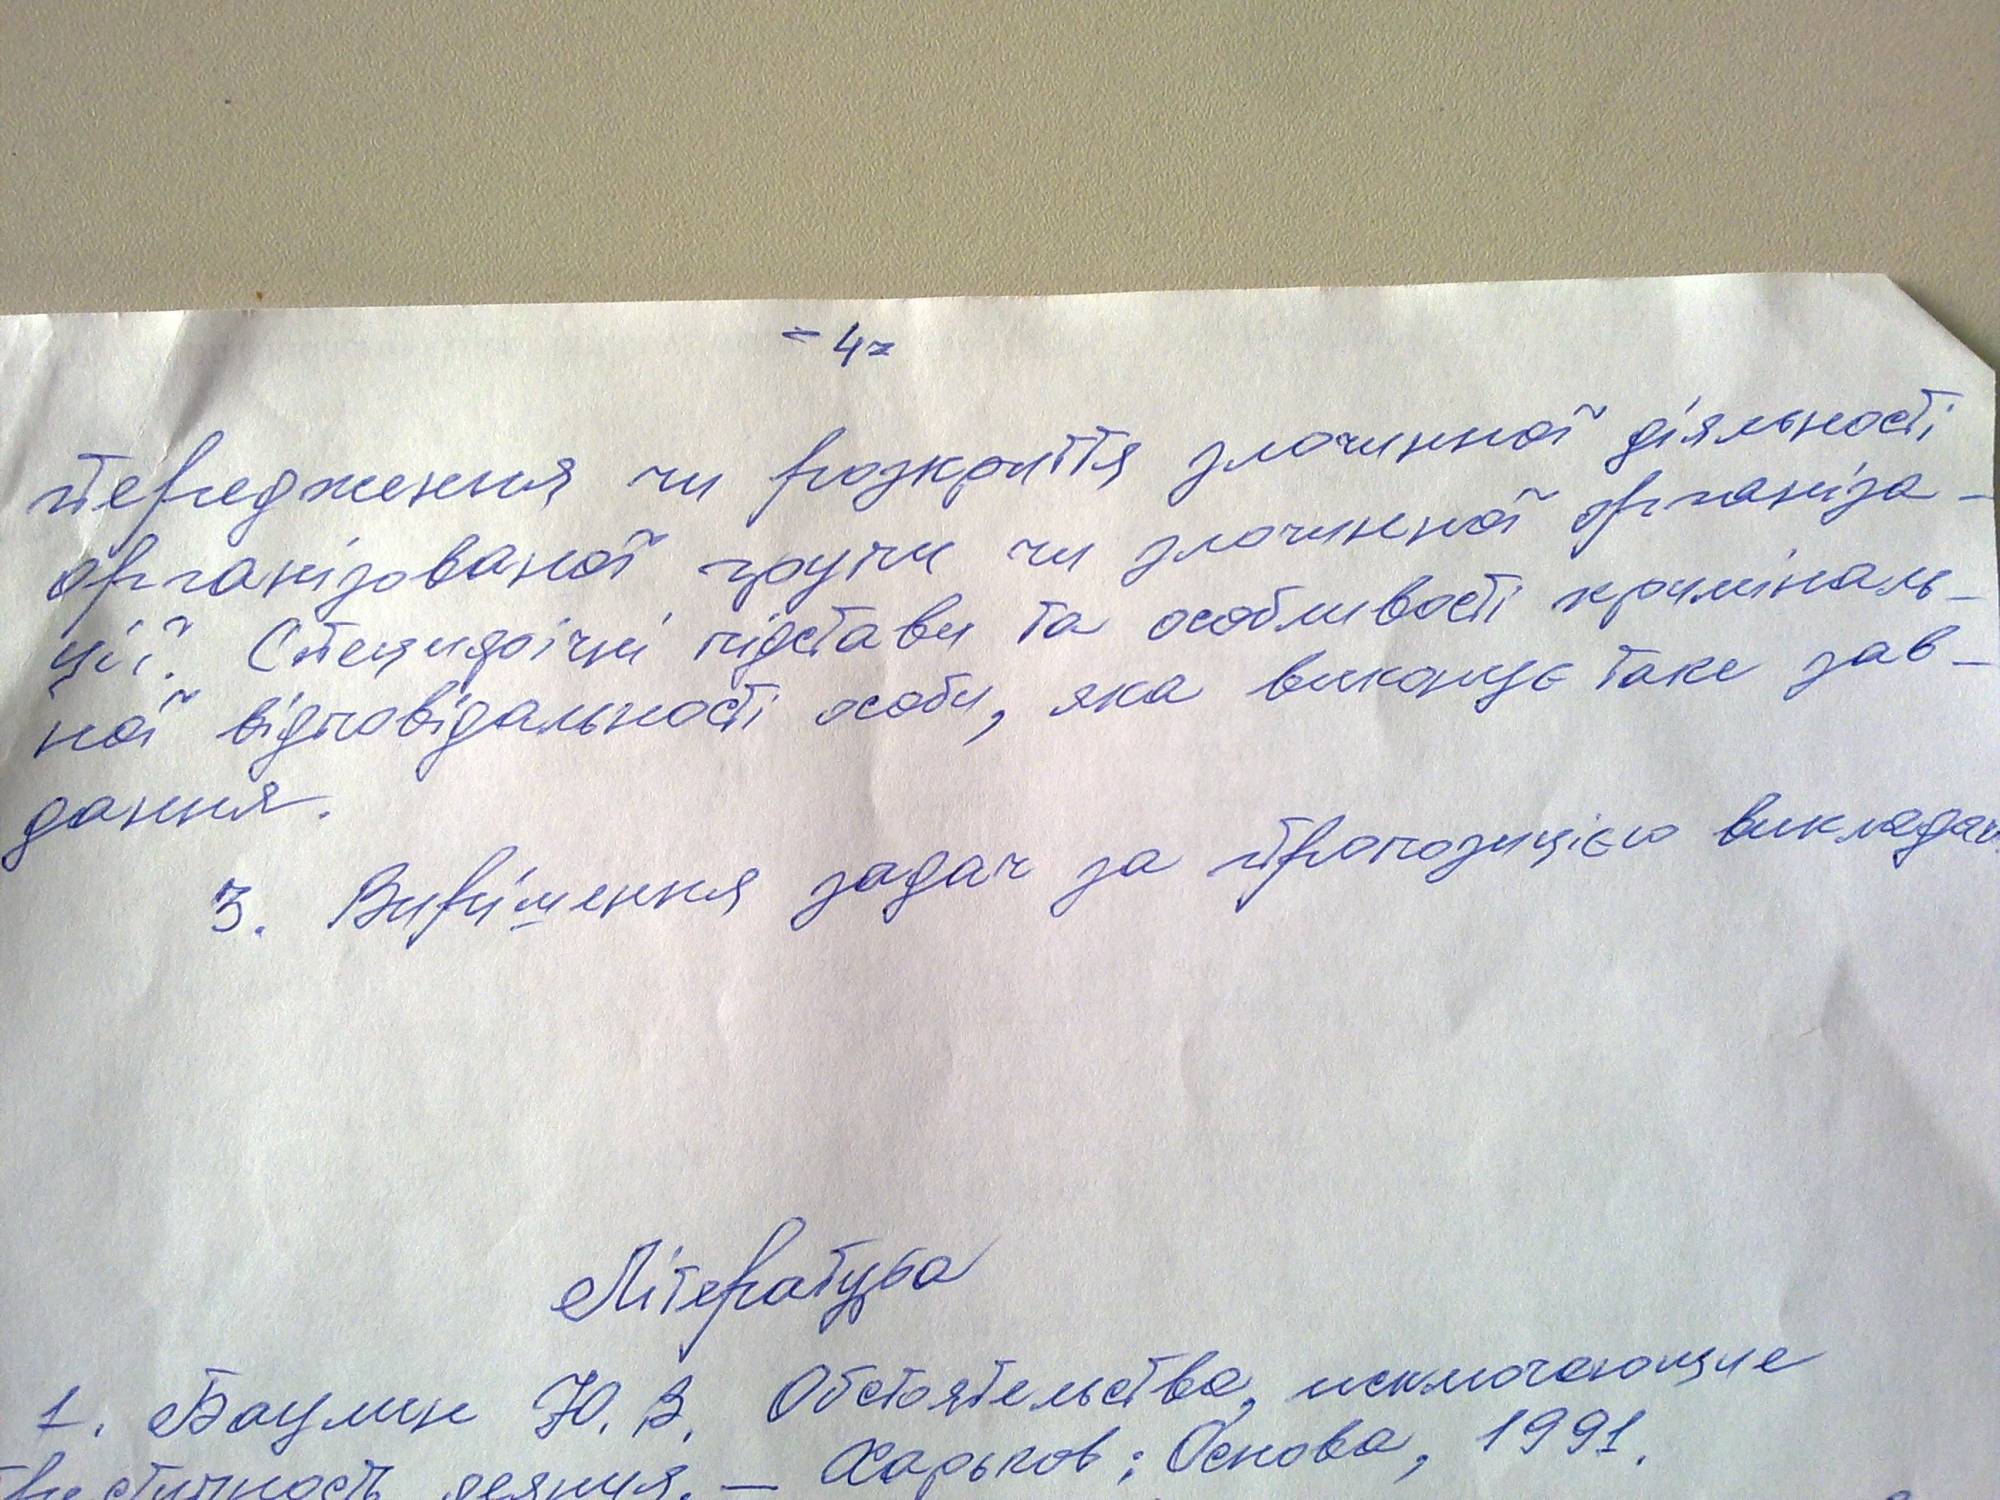 - 4 -
передження чи розкриття злочинної діяльності
організованої групи чи злочинної організа-
ції. Специфічні підстави та особливості криміналь-
ної відповідальності особи, яка виконує таке зав-
дання.
3. Вирішення задач за пропозицією викладач
Література
1. Баулин Ю. В. Обстоятельства, исключающие
преступность деяния. – Харьков : Основа, 1991.